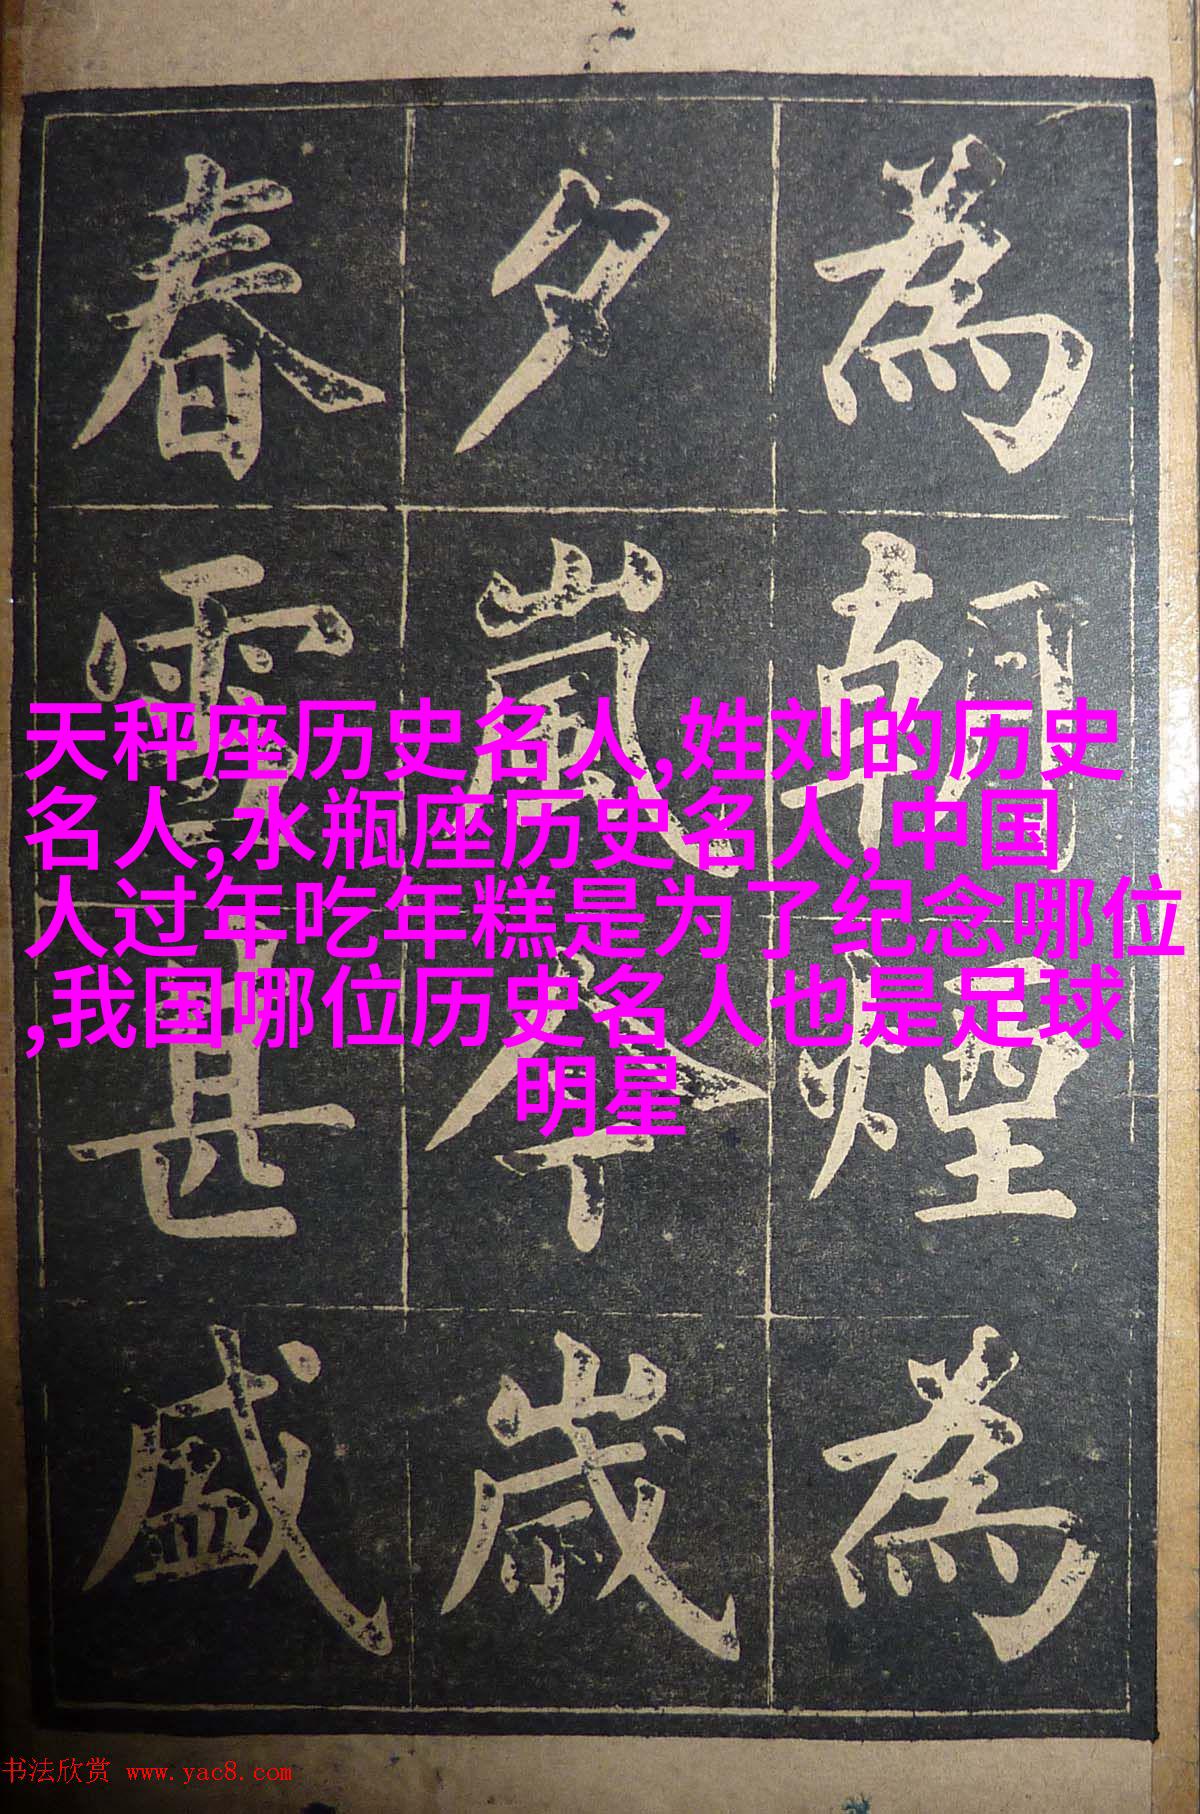 為朝煙為
夕嵐今歲
春雪甚盛
天秤座历史名人,姓刘的历史
名人,水瓶座历史名人,中国
人过年吃年糕是为了纪念哪位
,我国哪位历史名人也是足球
明星
书法欣赏 www.yac8.com